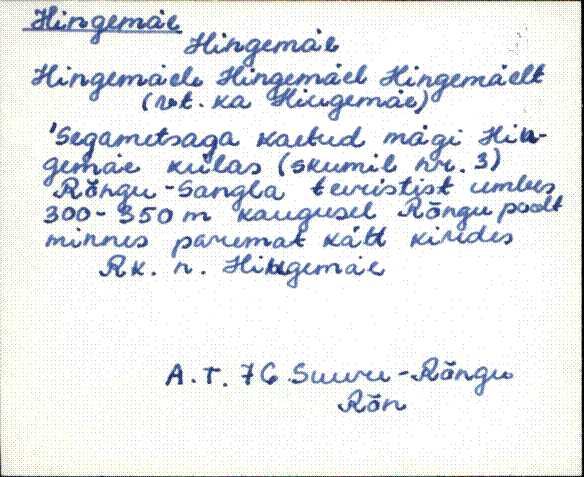 Hingemäe
Hingemäe
Hingemäele Hingemäel Hingemäelt
(vt. ka Hiugemäe)
'Segametsaga kaetud mägi Hin-
gemäe külas (skumil nr. 3)
Rõngu-Sangla teeristist umbes
300-350 m kaugusel Rõngu poolt
minnes paremat kätt kirdes
Rk. n. Hiugemäe
A.T. 76 Suure-Rõngu
Rõn